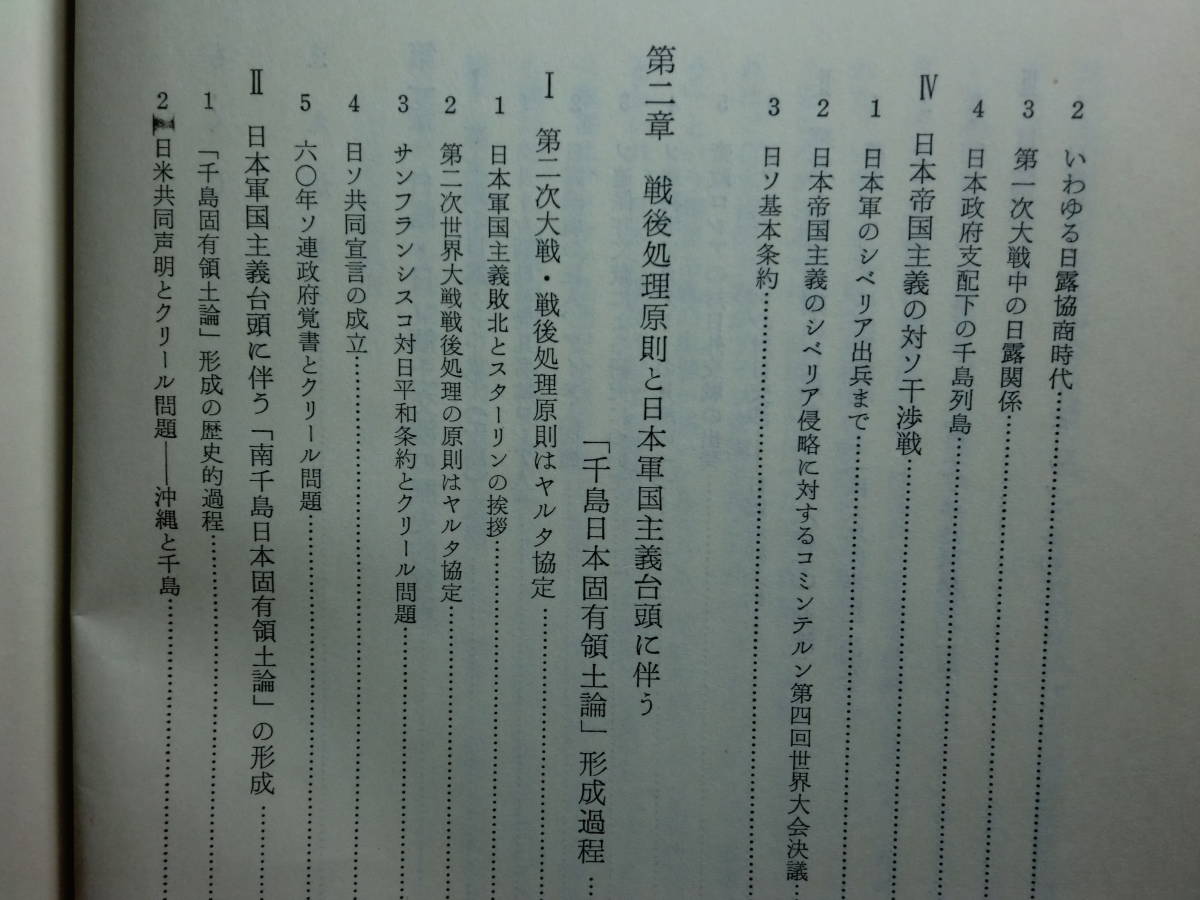 2 いわゆる日露協商時代……………………
3 第一次大戦中の日露関係……………………
4 日本政府支配下の千島列島……………………
Ⅳ 日本帝国主義の対ソ干渉戦……………………
1 日本軍のシベリア出兵まで……………………
2 日本帝国主義のシベリア侵略に対するコミンテルン第四回世界大会決議…
3 日ソ基本条約……………………
第二章 戦後処理原則と日本軍国主義台頭に伴う
「千島日本固有領土論」形成過程…
Ⅰ 第二次大戦・戦後処理原則はヤルタ協定……………………
1 日本軍国主義敗北とスターリンの挨拶……………………
2 第二次世界大戦戦後処理の原則はヤルタ協定……………………
3 サンフランシスコ対日平和条約とクリール問題……………………
4 日ソ共同宣言の成立……………………
5 六〇年ソ連政府覚書とクリール問題……………………
Ⅱ 日本軍国主義台頭に伴う「南千島日本固有領土論」の形成…………
1 「千島固有領土論」形成の歴史的過程……………………
2 日米共同声明とクリール問題――沖縄と千島……………………